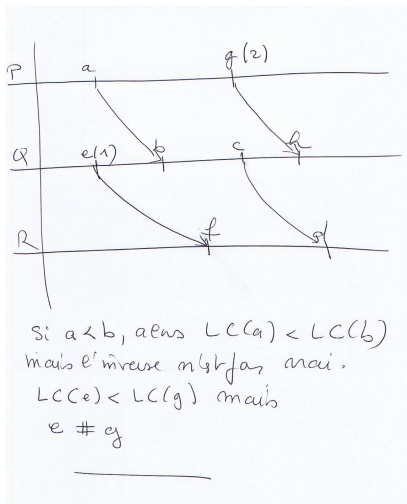 P a g(2)
Q e(1) b c h
R f d
Si a<b, alors LC(a) < LC(b)
mais l'inverse n'est pas vrai.
LC(e) < LC(g) mais
e # g